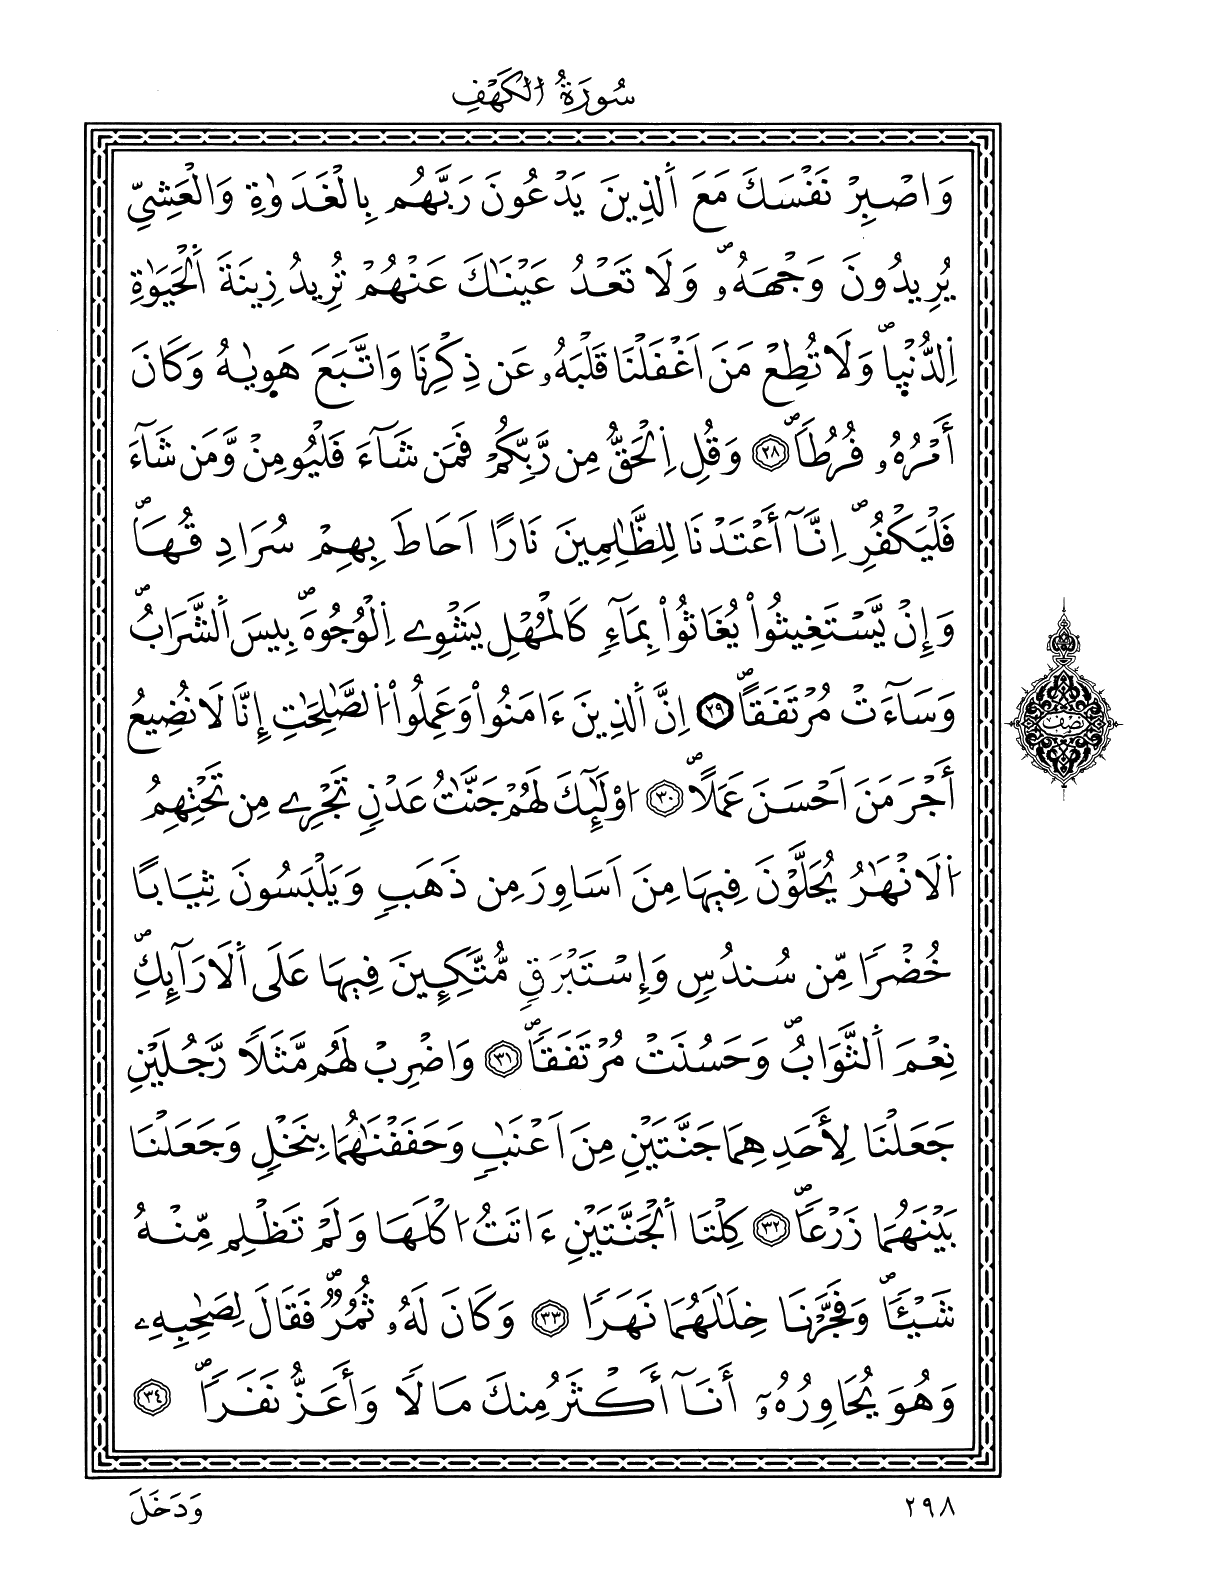 سُورَةُ الْكَهْفِ
وَاصْبِرْ نَفْسَكَ مَعَ اَ۬لذِينَ يَدْعُونَ رَبَّهُم بِالْغَدَوٰةِ وَالْعَشِيِّ
يُرِيدُونَ وَجْهَهُۥۖ وَلَا تَعْدُ عَيْنَٰكَ عَنْهُمْ تُرِيدُ زِينَةَ اَ۬لْحَيَوٰةِ
اِ۬لدُّنْي۪اۖ وَلَا تُطِعْ مَنَ اَغْفَلْنَا قَلْبَهُۥ عَن ذِكْرِنَا وَاتَّبَعَ هَو۪يٰهُ وَكَانَ
أَمْرُهُۥ فُرُطاٗۖ ٢٨ وَقُلِ اِ۬لْحَقُّ مِن رَّبِّكُمْ فَمَن شَآءَ فَلْيُومِنْ وَّمَن شَآءَ
فَلْيَكْفُرِۖ اِنَّآ أَعْتَدْنَا لِلظَّٰلِمِينَ نَارًا اَحَاطَ بِهِمْ سُرَادِقُهَاۖ
وَإِنْ يَّسْتَغِيثُواْ يُغَاثُواْ بِمَآءٖ كَالْمُهْلِ يَشْوِے اِ۬لْوُجُوهَۖ بِيسَ اَ۬لشَّرَابُۖ
وَسَآءَتْ مُرْتَفَقاًۖ ٢٩ اِنَّ اَ۬لذِينَ ءَامَنُواْ وَعَمِلُواْ اُ۬لصَّٰلِحَٰتِ إِنَّا لَا نُضِيعُ
أَجْرَ مَنَ اَحْسَنَ عَمَلاًۖ ٣٠ ا۟وْلَٰٓئِكَ لَهُمْ جَنَّٰتُ عَدْنٖ تَجْرِے مِن تَحْتِهِمُ
اُ۬لَانْهَٰرُ يُحَلَّوْنَ فِيهَا مِنَ اَسَاوِرَ مِن ذَهَبٖ وَيَلْبَسُونَ ثِيَاباً
خُضْراٗ مِّن سُندُسٖ وَإِسْتَبْرَقٖ مُّتَّكِـِٕينَ فِيهَا عَلَى اَ۬لَارَآئِكِۖ
نِعْمَ اَ۬لثَّوَابُۖ وَحَسُنَتْ مُرْتَفَقاٗۖ ٣١ وَاضْرِبْ لَهُم مَّثَلاٗ رَّجُلَيْنِ
جَعَلْنَا لِأَحَدِهِمَا جَنَّتَيْنِ مِنَ اَعْنَٰبٖ وَحَفَفْنَٰهُمَا بِنَخْلٖ وَجَعَلْنَا
بَيْنَهُمَا زَرْعاٗۖ ٣٢ كِلْتَا اَ۬لْجَنَّتَيْنِ ءَاتَتُ ا۟كْلَهَا وَلَمْ تَظْلِم مِّنْهُ
شَيْـٔاٗۖ وَفَجَّرْنَا خِلَٰلَهُمَا نَهَراٗ ٣٣ وَكَانَ لَهُۥ ثُمُرٞۖ فَقَالَ لِصَٰحِبِهِۦ
وَهُوَ يُحَاوِرُهُۥٓ أَنَآ أَكْثَرُ مِنكَ مَالاٗ وَأَعَزُّ نَفَراٗۖ ٣٤
نصف
٢٩٨
وَدَخَلَ